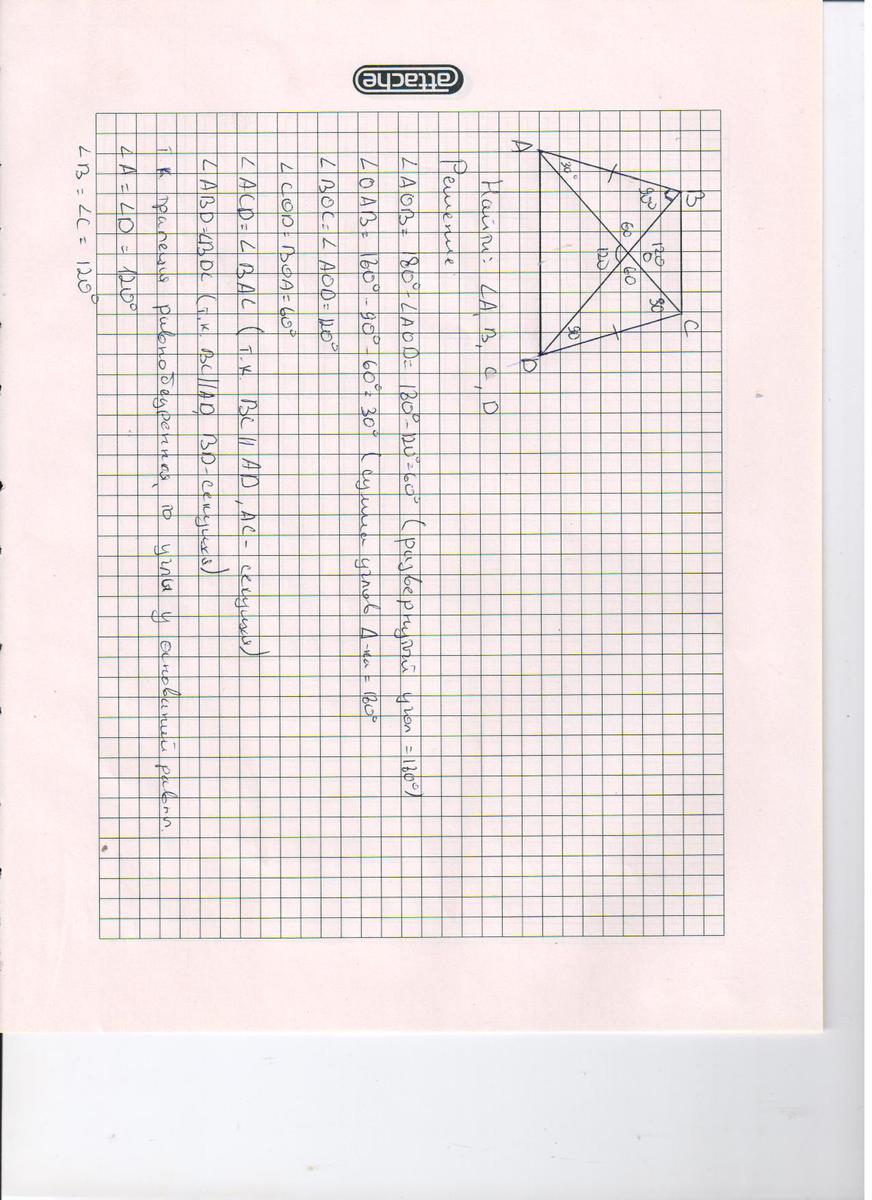 attache
B
C
A
D
30°
90°
60
120
О
60
120
90
90
Найти: ∠A, B, C, D
Решение:
∠AOB = 180°-∠AOD = 180°-120°=60° (развернутый угол = 180°)
∠OAB = 180°-90°-60°=30° (сумма углов Δ-ка = 180°
∠BOC=∠AOD=120°
∠COD=BOA=60°
∠ACD=∠BAC (т.к. BC || AD, AC- секущая)
∠ABD=∠BDC (т.к. BC||AD, BD-секущая)
Т.к трапеция равнобедренная, то углы у оснований равны.
∠A=∠D=120°
∠B=∠C=120°